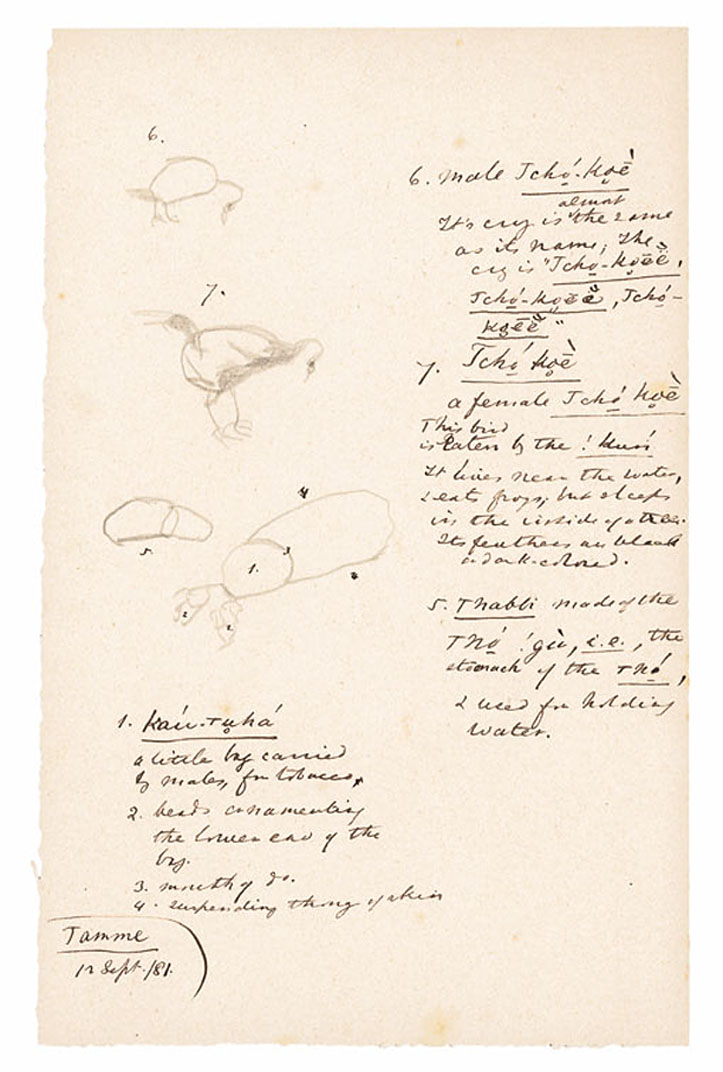 6.
7.
6. male Tchọ́-kọḕ
almost
It's cry is the same
as its name; the
cry is "Tchọ́-kọēĕ̀,
Tchọ́-kọēĕ̀, Tchọ́-
kọēĕ̀"
7. Tchọ́ kọḕ
a female Tchọ́ kọḕ
This bird
is eaten by the !kuń
It lives near the water,
& eats frogs; but sleeps
in the inside of a tree.
Its feathers are black
a dark-colored.
4
5.
3
1.
4
2
2
5. Thabbi made of the
Tnọ́ !gù, i.e., the
stomach of the Tnọ́,
& used for holding
water.
1. Káu-tụhá
a little bag carried
by males, for tobacco,
2. beads ornamenting
the lower end of the
bag.
3. mouth of do.
4. suspending thong of skin
Tamme
12 Sept./81.